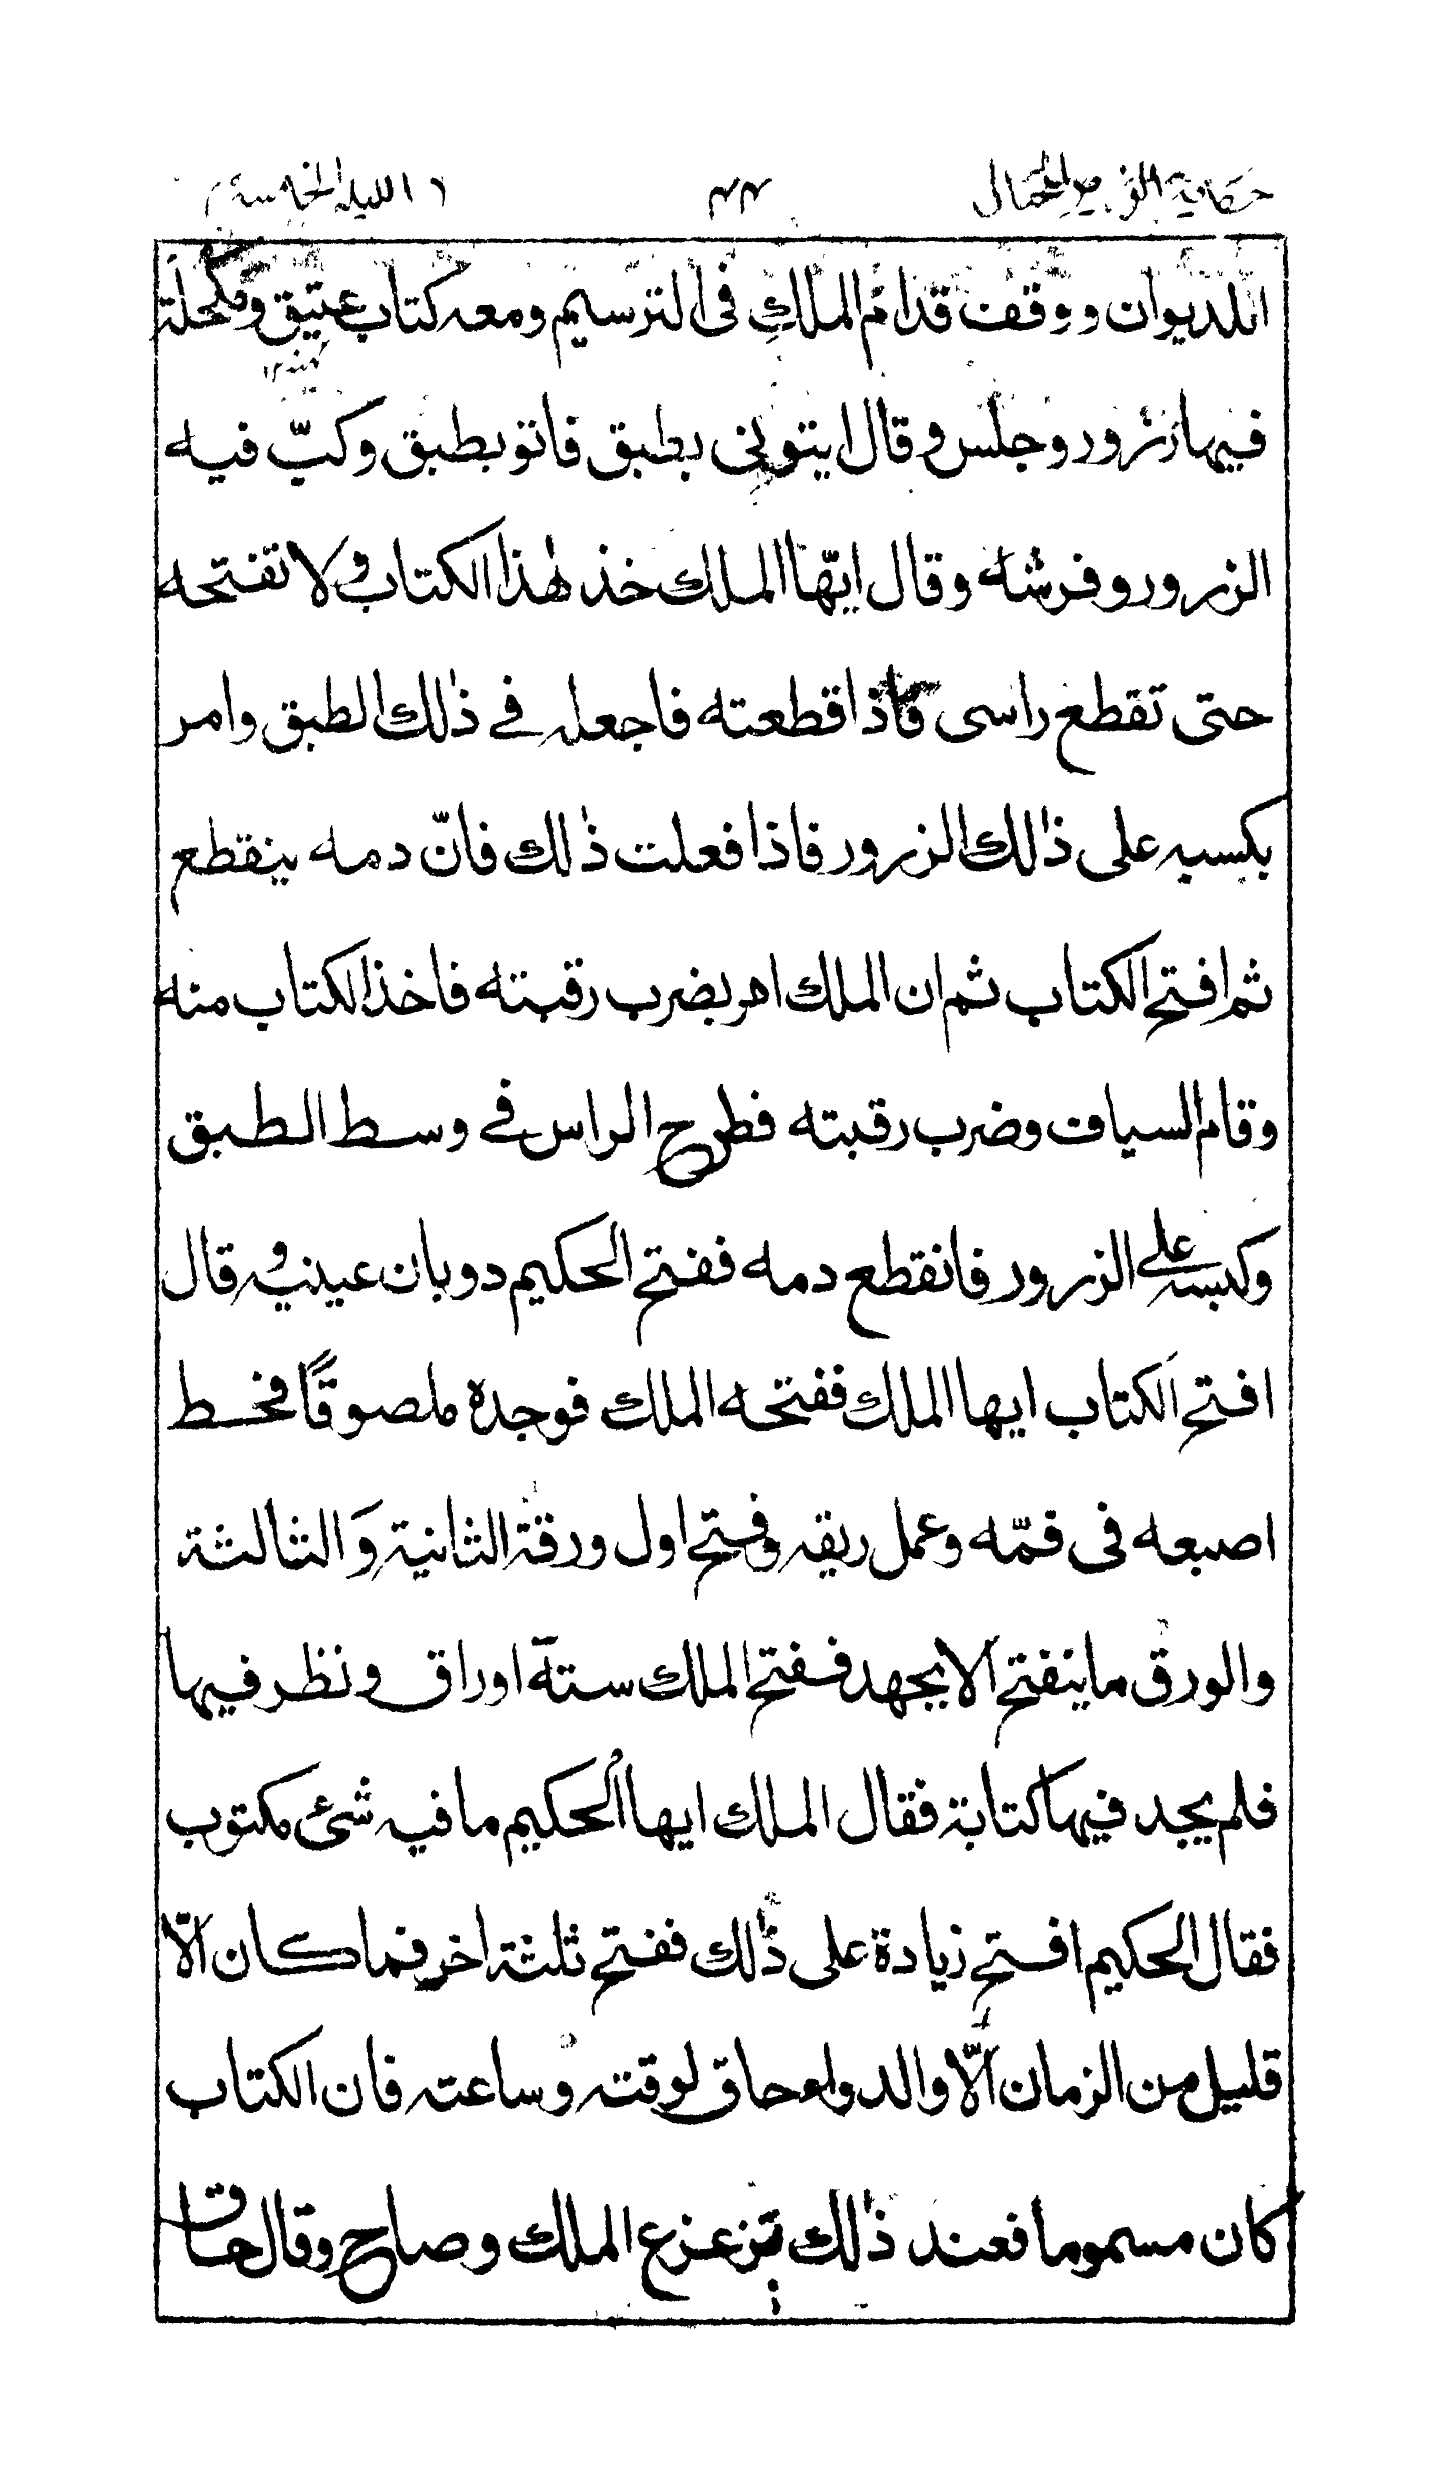 حكاية الوزير الحمال ٤٤ الليلة الخامسة
الديوان ووقف قدام الملك فى الترسيم ومعه كتاب عتيق ومكحلة
فيها زرور وجلس وقال ايتونى بطبق فاتو بطبق وكبّ فيه
الزرور وفرشه وقال ايّها الملك خذ هٰذا الكتاب و لا تفتحه
حتى تقطع راسى فاذا قطعته فاجعله فے ذٰلك الطبق وامر
بكبسه على ذٰلك الزرور فاذا فعلت ذٰلك فانّ دمه ينقطع
ثم افتح الكتاب ثم ان الملك امر بضرب رقبته فاخذ الكتاب منه
وقام السياف وضرب رقبته فطرح الراس فے وسط الطبق
وكبسه علے الزرور فانقطع دمه ففتح الحكيم دوبان عينيه و قال
افتح الكتاب ايها الملك ففتحه الملك فوجده ملصوقًا فحط
اصبعه فى فمّه وعمل ريقه وفتح اول ورقة الثانية وَ الثالثة
والورق ما ينفتح الا بجهد ففتح الملك ستة اوراق ونظر فيها
فلم يجد فيها كتابة فقال الملك ايها الحكيم ما فيه شئ مكتوب
فقال الحكيم افتح زيادة على ذٰلك ففتح ثلثة اخر فما كان الّا
قليل من الزمان الّا والدوا حاق لوقته وساعته فان الكتاب
كان مسموما فعند ذٰلك تزعزع الملك وصاح وقال حاق